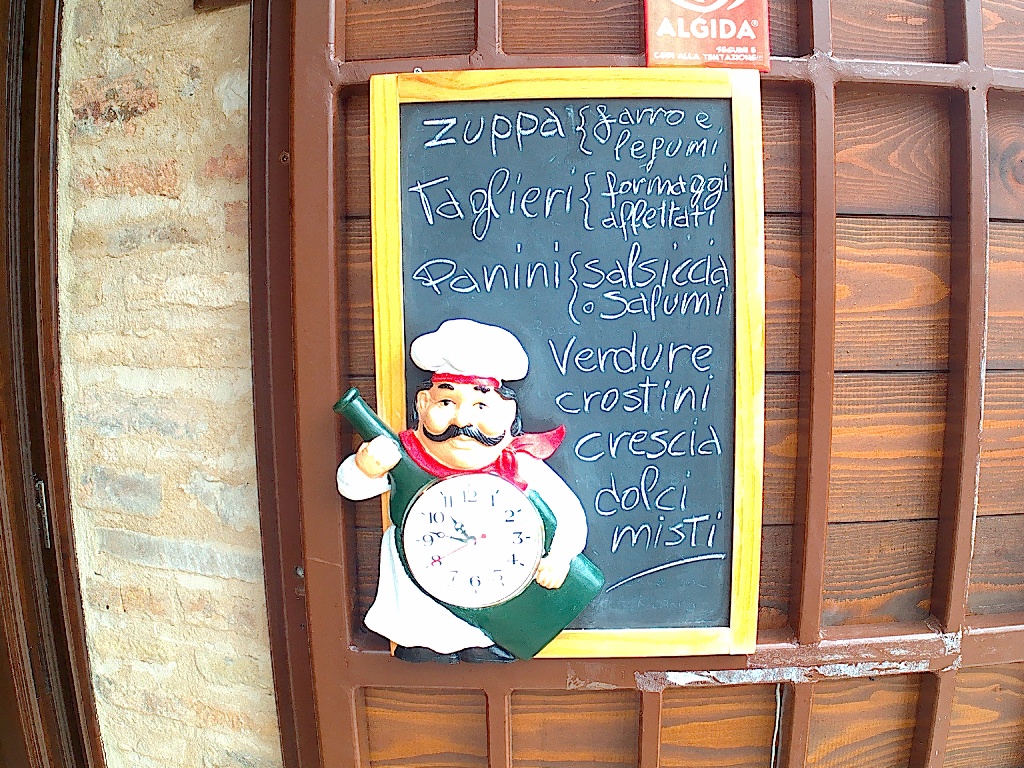 ALGIDA
CEDI ALLA TENTAZIONE
zuppa { farro e
legumi
Taglieri { formaggi
affettati
Panini { salsiccia
o salumi
Verdure
crostini
crescia
dolci
misti
12
1
2
3
4
5
6
7
8
9
10
11